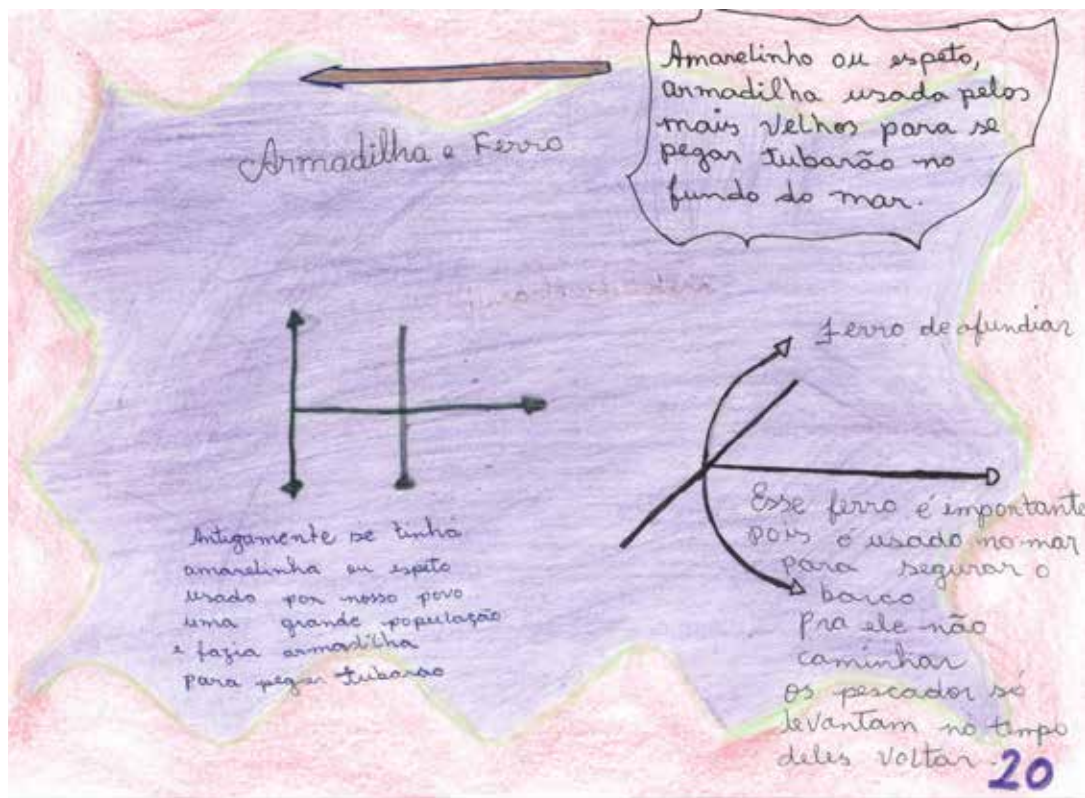 Amarelinho ou espeto,
armadilha usada pelos
mais velhos para se
pegar tubarão no
fundo do mar.
Armadilha e Ferro
Antigamente se tinha
amarelinha ou espeto
usado por nosso povo
uma grande população
e fazia armadilha
para pegar tubarão
ferro de afundiar
Esse ferro é importante
pois é usado no mar
para segurar o
barco
pra ele não
caminhar
os pescador só
levantam no tempo
deles voltar.
20